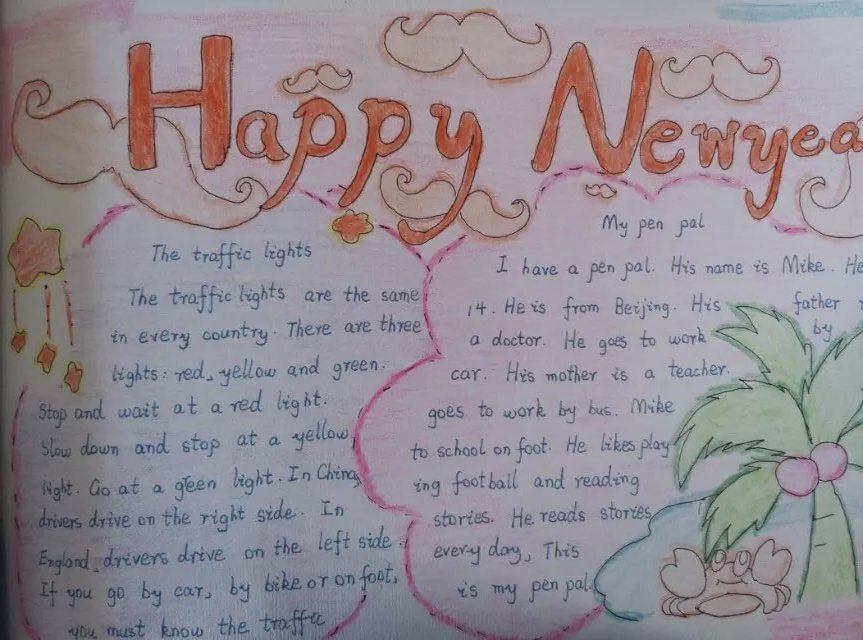 Happy Newyea
The traffic lights
The traffic lights are the same
in every country. There are three
lights: red, yellow and green.
Stop and wait at a red light.
Slow down and stop at a yellow
light. Go at a green light. In China,
drivers drive on the right side. In
England, drivers drive on the left side.
If you go by car, by bike or on foot,
you must know the traffic
My pen pal
I have a pen pal. His name is Mike. He
14. He is from Beijing. His father
a doctor. He goes to work by
car. His mother is a teacher.
goes to work by bus. Mike
to school on foot. He likes play
ing football and reading
stories. He reads stories
every day, This
is my pen pal.